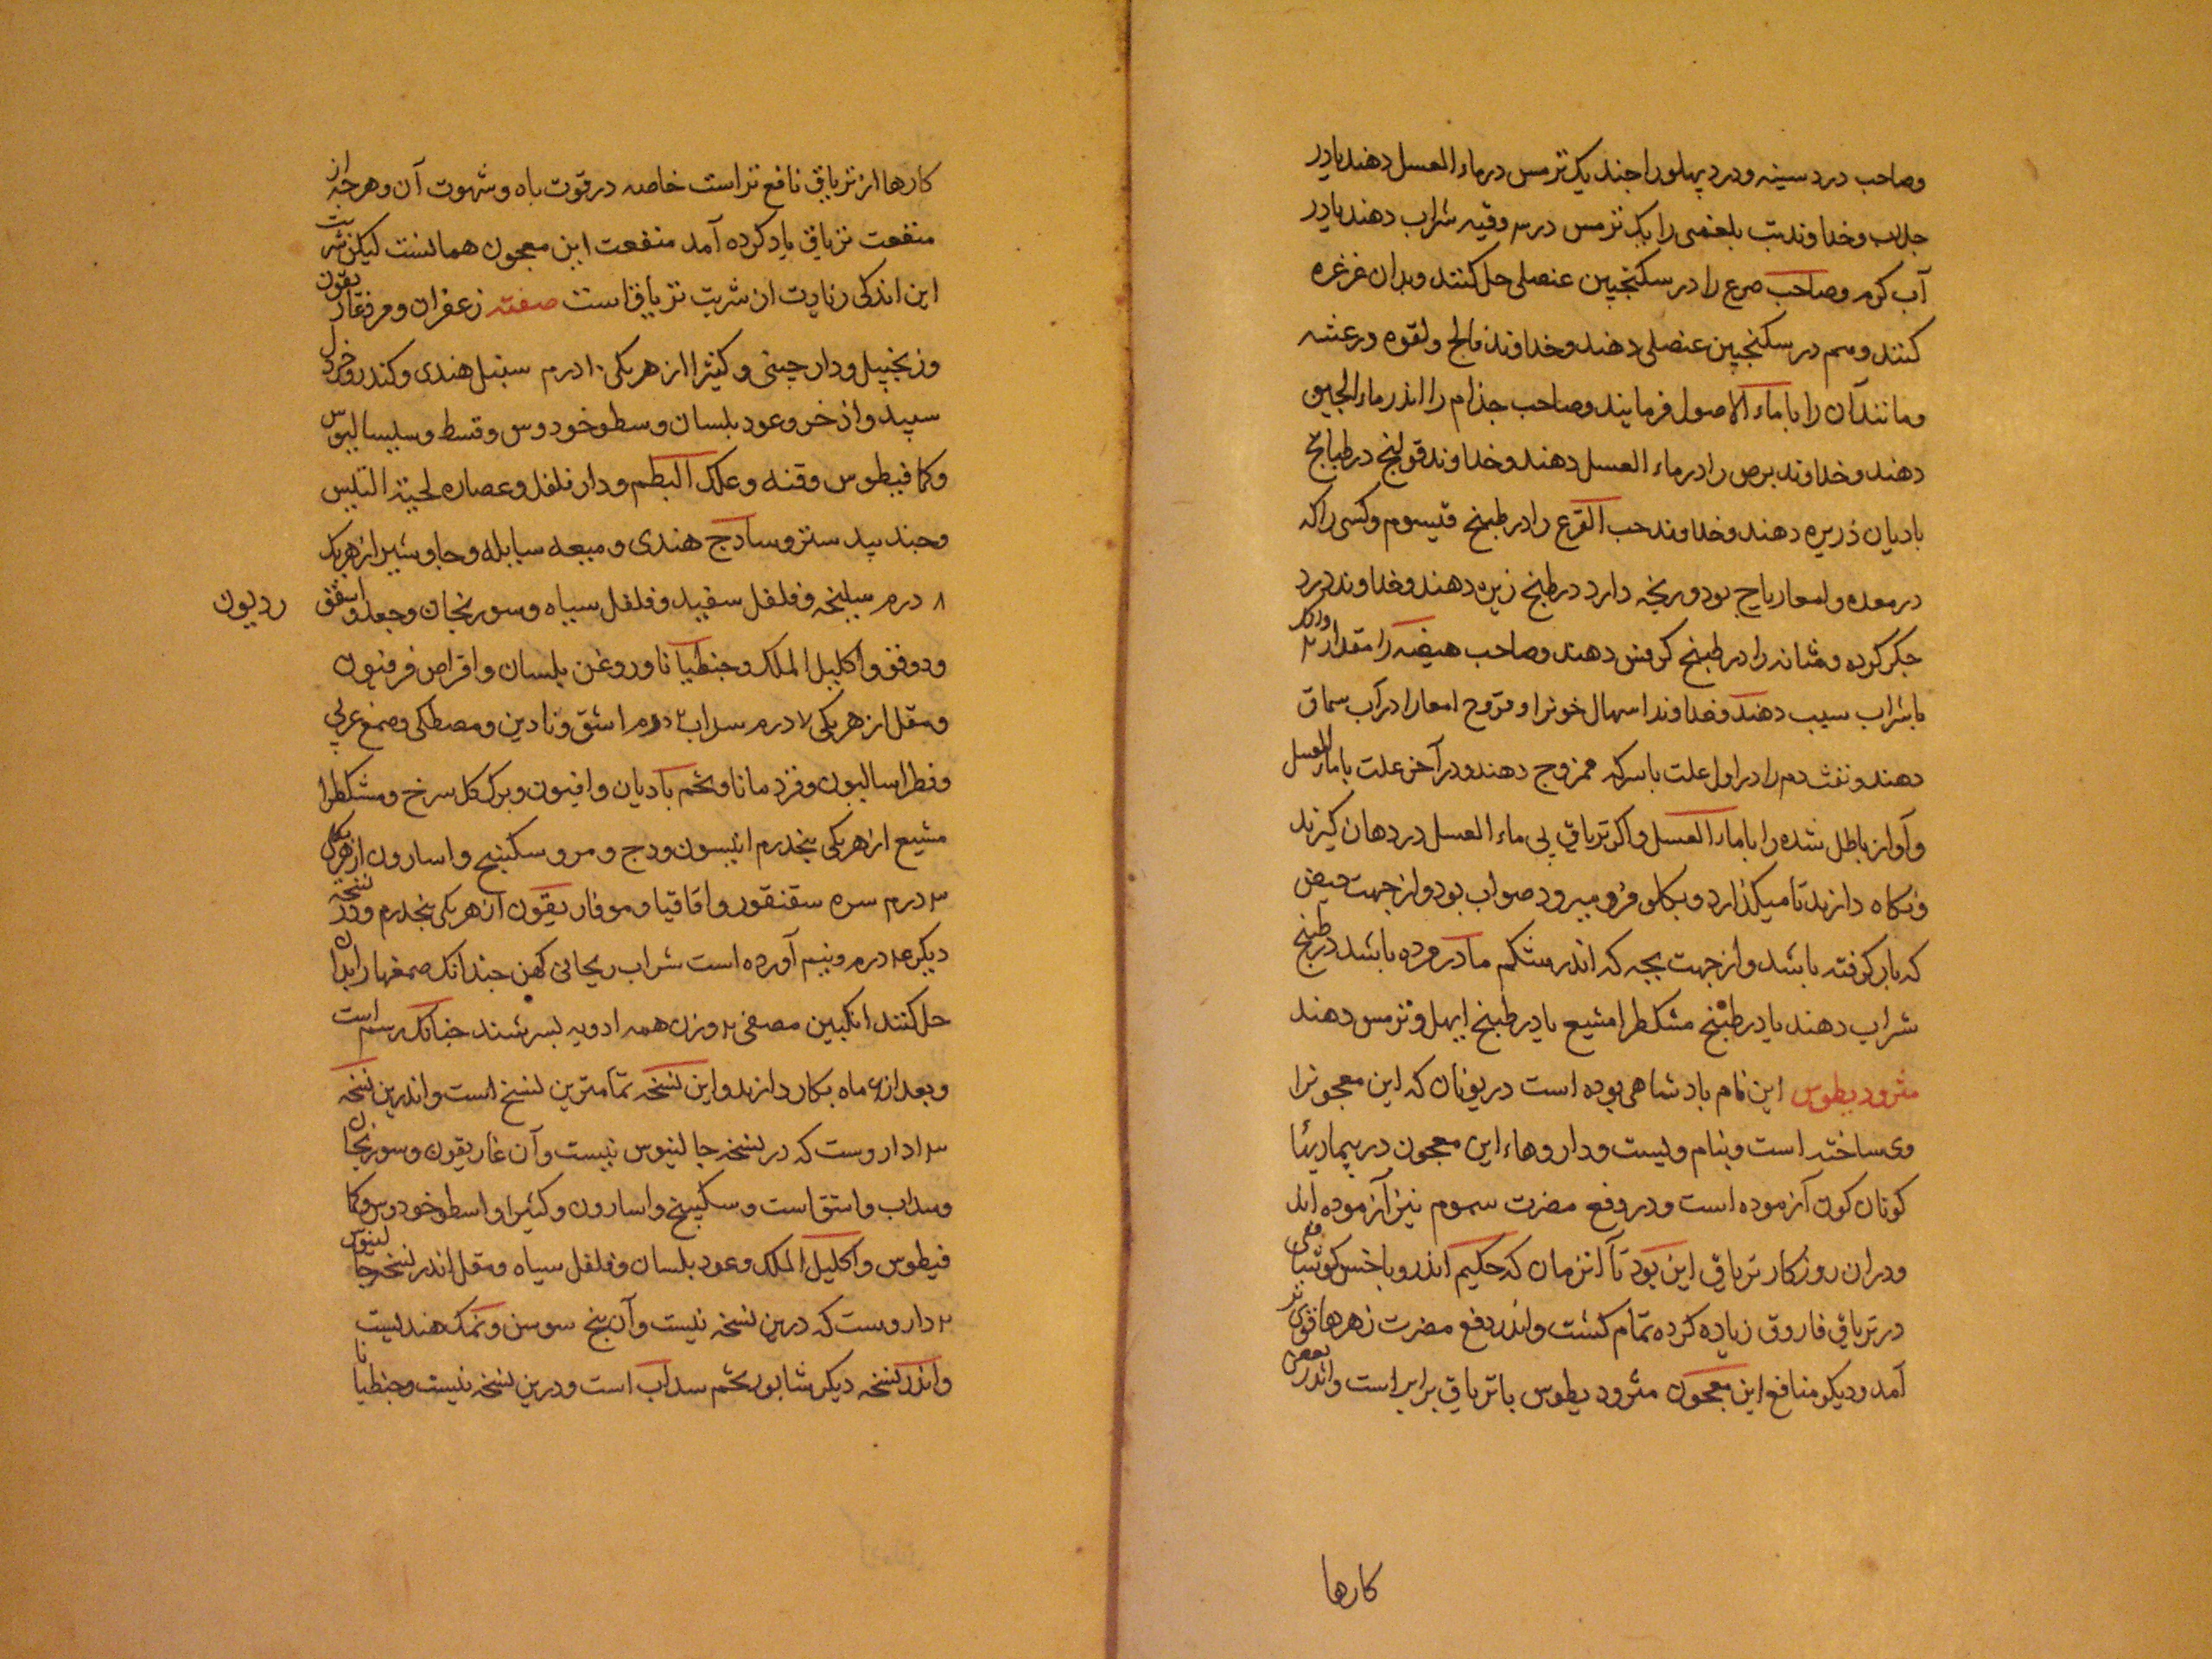 وصاحب درد سینه و درد پهلو را چند یک ترمس در ماء العسل دهند یا در
جلاب و خداوند تب بلغمی را یک ترمس در ۳ وقیه شراب دهند یا در
آب کرم و صاحب صرع را در سکنجبین عنصلی حل کنند و بدان غرغره
کنند و هم در سکنجبین عنصلی دهند و خداوند فالج و لقوه و رعشه
و مانند آن را با ماء الاصول فرمایند و صاحب جذام را اندر ماء الجبن
دهند و خداوند برص را در ماء العسل دهند و خداوند قولنج در طبیخ
بادیان دهند و خداوند حب القرع را در طبیخ قیسوم و کسی را که
در معده و امعا ریاح بود در طبیخ زیره دهند و خداوند درد
جکر کرده و مثانه را در طبیخ کرفس دهند و صاحب هیضه را مقدار ۲ دانک
با شراب سیب دهند و خداوند اسهال خونرا و قروح امعا را در آب سماق
دهند و نفث دم را در اول علت با سرکه ممزوج دهند و در آخر علت با ماء العسل
و آواز باطل شده را با ماء العسل و اکر تریاق بی ماء العسل در دهان کیرند
و نکاه دارند تا میکذارد و بکلو فرو میرود صواب بود و از جهت حیض
که باز کرفته باشد و از جهت بچه که اندر شکم مادر مرده باشد در طبیخ
شراب دهند یا در طبیخ مشکطرامشیع یا در طبیخ ابهل و ترمس دهند
مثرودیطوس این نام بادشاهی بوده است در یونان که این معجونرا
وی ساخته است و بنام ویست و داروهاء این معجون در بیماریها
کوناکون آزموده است و در دفع مضرت سموم نیز آزموده اند
و دران روزکار تریاق این بود تا آنزمان که حکیم اندروماخس کوشت افعی
در تریاق فاروق زیاده کرده تمام کشت و اندر دفع مضرت زهرها قوی تر
آمد و دیکر منافع این معجون مثرودیطوس با تریاق برابر است و اندر بعضی
کارها
کارها از تریاق نافع تر است خاصه در قوت باه و شهوت آن و هرچه از
منفعت تریاق یاد کرده آمد منفعت این معجون همانست لیکن شربت
این اندکی زیادت از شربت تریاق است صفته زعفران و مر و غاریقون
و زنجبیل و دارچینی و کثیرا از هر یکی ۱۰ درم سنبل هندی و کندر و خردل
سپید و اذخر و عود بلسان و سطوخودوس و قسط و سیسالیوس
و کمافیطوس و قنه و علک البطم و دارفلفل و عصاره لحیة التیس
و جندبیدستر و سادج هندی و میعه سایله و جاوشیر از هر یک
۸ درم سلیخه و فلفل سفید و فلفل سیاه و سورنجان و جعده و اسقوردیون
و دوقو و اکلیل الملک و جنطیانا و روغن بلسان و اقراص فرفیون
و مقل از هر یکی ۷ درم سداب ۲ درم اشق و نادین و مصطکی و صمغ عربی
و فطراسالیون و قردمانا و تخم بادیان و افیون و برک کل سرخ و مشکطرا
مشیع از هر یکی پنجدرم انیسون و وج و مو و سکبینج و اسارون از هر یکی
۳ درم سره سقنقور و اقاقیا و هوفاریقون از هر یکی پنجدرم و در نسخه
دیکر ۴ درم و نیم آورده است شراب ریحانی کهن چندانک صمغها را بدان
حل کنند انکبین مصفی ۲ وزن همه ادویه بسرشند چنانک رسم است
و بعد از ۶ ماه بکار دارند و این نسخه تمامترین نسخ است و اندرین نسخه
۱۳ داروست که در نسخه جالینوس نیست و آن غاریقون و سورنجان
و سداب و اشق است و سکبینج و اسارون و کثیرا و اسطوخودوس و کما
فیطوس و اکلیل الملک و عود بلسان و فلفل سیاه و مقل اندر نسخه جالینوس
۲ داروست که درین نسخه نیست و آن بیخ سوسن و نمک هندیست
و اندر نسخه دیکر شابور تخم سداب است و درین نسخه نیست و جنطیانا